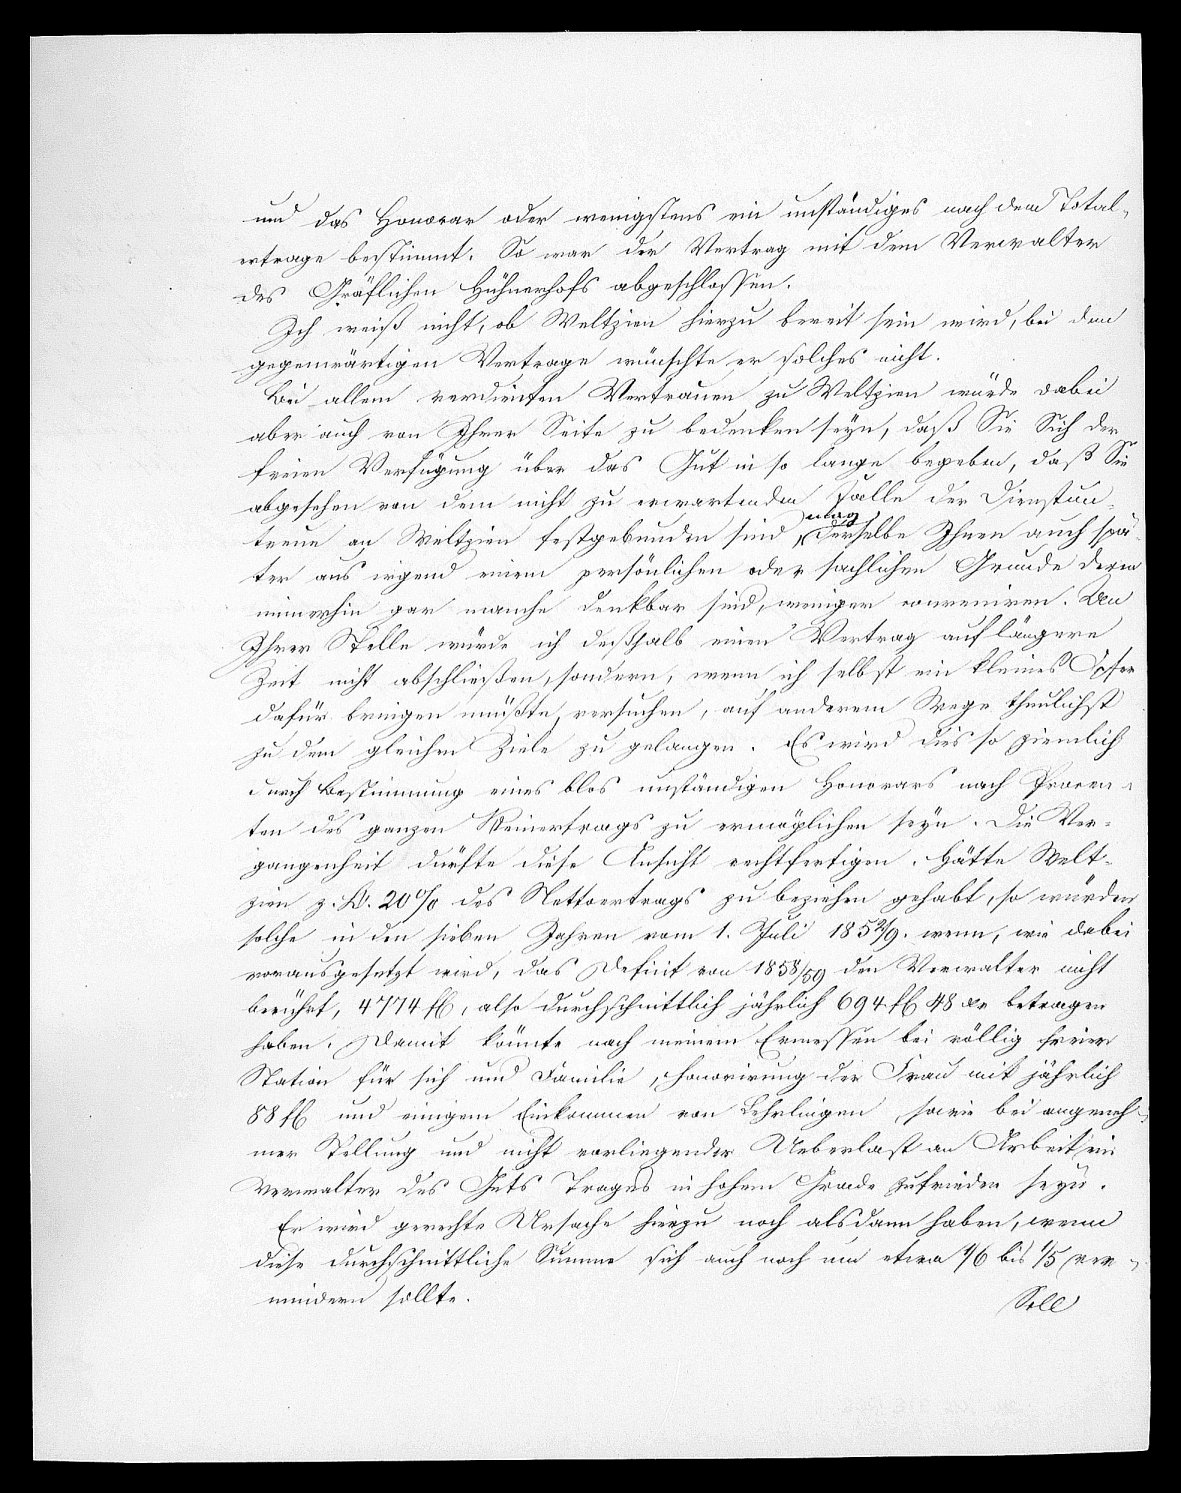 und das Honorar oder wenigstens ein unständiges nach dem Total-
ertrage bestimmt. So war der Vertrag mit dem Verwalter
des Gräflichen Hühnerhofs abgeschlossen.
Ich weiß nicht, ob Weltzien hierzu bereit sein wird, bei dem
gegenwärtigen Vertrage wünschte er solches nicht.
Bei allem verdienten Vertrauen zu Weltzien würde dabei
aber auch von Ihrer Seite zu bedenken seyn, daß Sie Sich der
freien Verfügung über das Gut in so lange begeben, daß Sie
abgesehen von dem nicht zu erwartenden Falle der Dienstun-
treue an Weltzien festgebunden sind, mag derselbe Ihnen auch spä-
ter aus irgend einem persönlichen oder sachlichen Grunde deren
immerhin gar manche denkbar sind, weniger conveniren. An
Ihrer Stelle würde ich deßhalb einen Vertrag auf längere
Zeit nicht abschließen, sondern, wenn ich selbst ein kleines Opfer
dafür bringen müßte, versuchen, auf anderem Wege thunlichst
zu dem gleichen Ziele zu gelangen. Es wird dies so ziemlich
durch Bestimmung eines blos unständigen Honorars nach Procen-
ten des ganzen Reinertrags zu ermöglichen seyn. Die Ver-
gangenheit dürfte diese Ansicht rechtfertigen. Hätte Welt-
zien z. B. 20% des Nettoertrags zu beziehen gehabt, so würden
solche in den sieben Jahren vom 1. Juli 1852/9. wenn, wie dabei
vorausgesetzt wird, das Deficit von 1858/59 den Verwalter nicht
berührt, 4774 fl, also durchschnittlich jährlich 694 fl 48 xr betragen
haben. Damit könnte nach meinem Ermessen bei völlig freier
Station für sich und Familie, Honorirung der Frau mit jährlich
88 fl und einigem Einkommen von Lehrlingen, sowie bei angeneh-
mer Stellung und nicht vorliegender Ueberlast an Arbeit ein
Verwalter des Guts Trages in hohem Grade zufrieden seyn.
Er wird gerechte Ursache hierzu noch alsdann haben, wenn
diese durchschnittliche Summe sich auch noch um etwa 1/6 bis 1/5 ver-
mindern sollte.
Soll